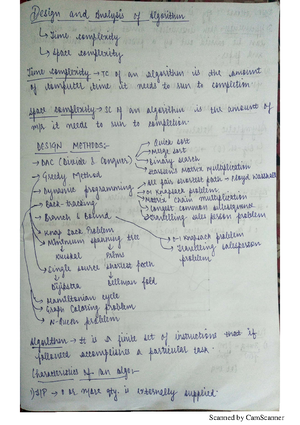 Design and Analysis of Algorithm
↳ Time complexity
↳ Space complexity
Time complexity → TC of an algorithm is the amount
of computer time it needs to run to completion
Space complexity → SC of an algorithm is the amount of
m/s it needs to run to completion.
DESIGN METHODS:-
→ Quick sort
→ Merge sort
→ DAC (Divide & Conquer) → Binary search
→ Strassens Matrix multiplication
→ Greedy Method
→ All pair shortest path - Floyd Warshall
→ Dynamic programming → 0/1 Knapsack problem
→ Matrix chain multiplication
→ Back-tracking → Longest common subsequence
→ Branch & Bound → Travelling sales person problem
→ Knap Sack Problem
→ Minimum spanning tree
Kruskal Prims
→ 0-1 Knapsack problem
→ Travelling salesperson
problem
→ Single source shortest path
Dijkstra Bellman fold
→ Hamiltonian cycle
→ Graph Coloring problem
→ N-Queen problem
Algorithm → It is a finite set of instructions that if
followed accomplishes a particular task.
Characteristics of an algo:-
1) I/P → 0 or more qty. is externally supplied.
Scanned by CamScanner